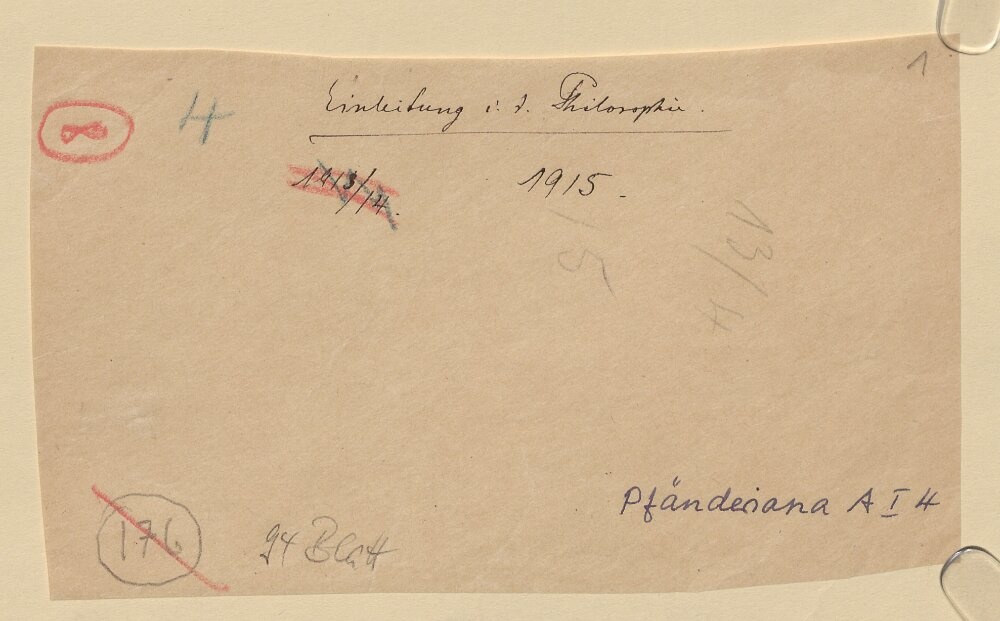 1
8
4
Einleitung i. d. Philosophie.
1913/14.
1915.
15
13/14
Pfänderiana A I 4
176
94 Blatt